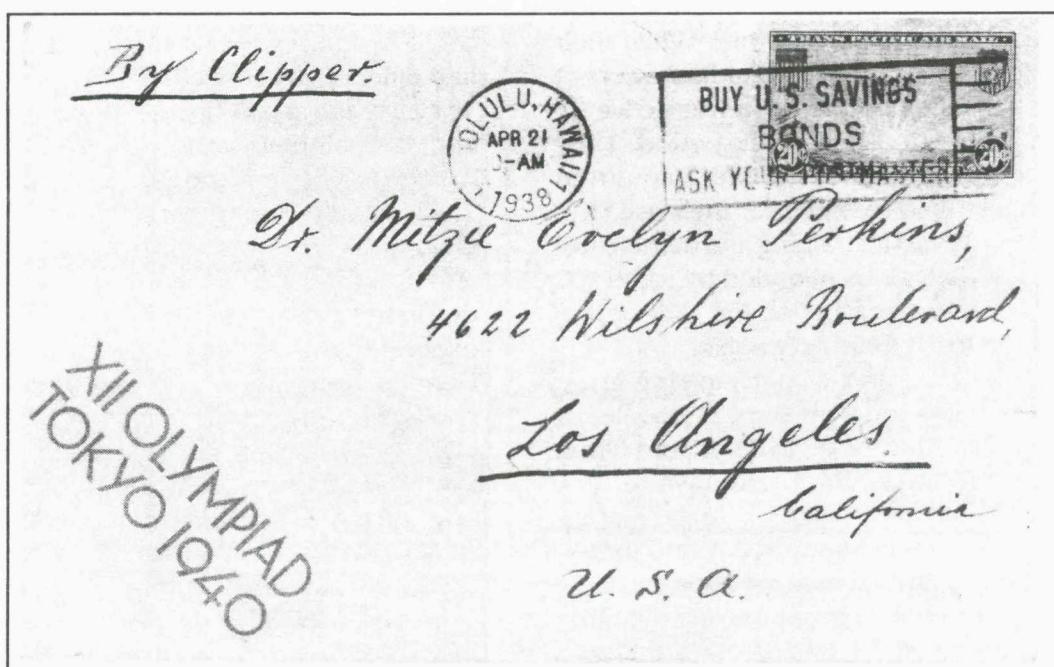 By Clipper
OLULU, HAWAII
APR 21
-AM
1938
BUY U. S. SAVINGS
BONDS
ASK YOUR POSTMASTER
20¢ 20¢
Dr. Mitzie Evelyn Perkins,
4622 Wilshire Boulevard,
Los Angeles.
California
U. S. A
XII OLYMPIAD
TOKYO 1940